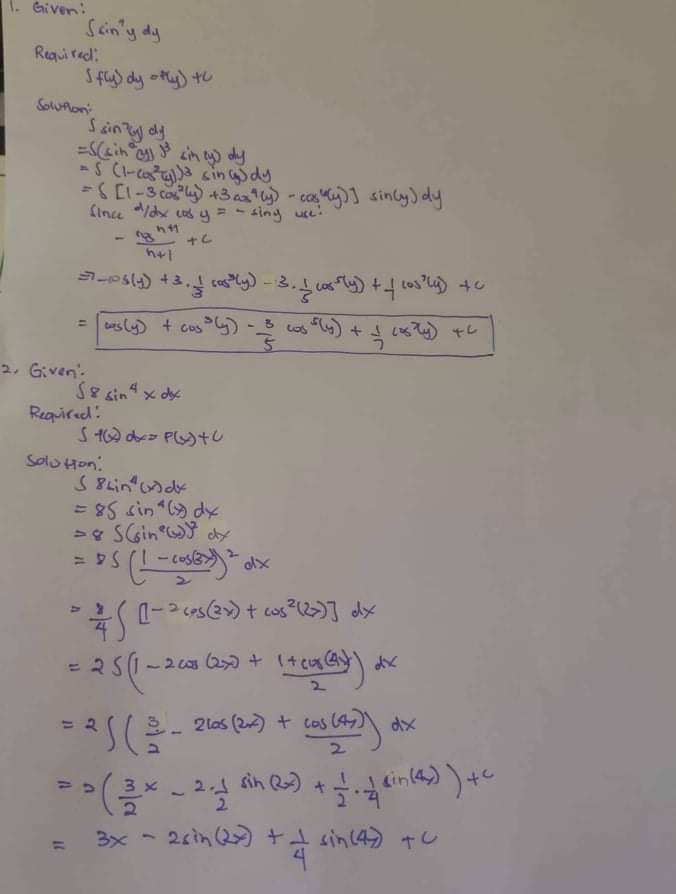 1. Given:
∫ sin⁷y dy
Required:
∫ f(y) dy = F(y) + C
Solution:
∫ sin⁷(y) dy
= ∫ (sin²(y))³ sin(y) dy
= ∫ (1-cos²(y))³ sin(y) dy
= ∫ [1 - 3cos²(y) + 3cos⁴(y) - cos⁶(y)] sin(y) dy
Since d/dx cos y = - sin y use:
- cos^(n+1) / (n+1) + C
=> -cos(y) + 3 · 1/3 cos³(y) - 3 · 1/5 cos⁵(y) + 1/7 cos⁷(y) + C
= cos(y) + cos³(y) - 3/5 cos⁵(y) + 1/7 cos⁷(y) + C
2. Given:
∫ 8 sin⁴ x dx
Required:
∫ f(x) dx = F(x) + C
Solution:
∫ 8 sin⁴(x) dx
= 8 ∫ sin⁴(x) dx
= 8 ∫ (sin²(x))² dx
= 8 ∫ ((1 - cos(2x))/2)² dx
= 8/4 ∫ [1 - 2cos(2x) + cos²(2x)] dx
= 2 ∫ (1 - 2cos(2x) + (1 + cos(4x))/2) dx
= 2 ∫ (3/2 - 2cos(2x) + cos(4x)/2) dx
= 2 (3/2 x - 2 · 1/2 sin(2x) + 1/2 · 1/4 sin(4x)) + C
= 3x - 2sin(2x) + 1/4 sin(4x) + C